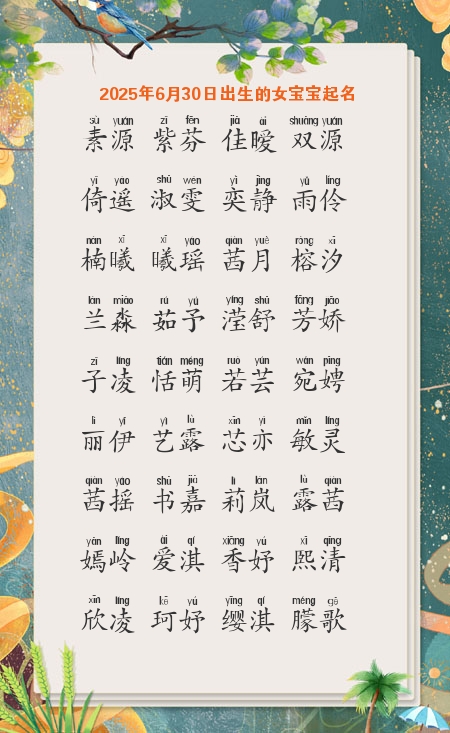 2025年6月30日出生的女宝宝起名
sù yuán zǐ fēn jiā ài shuāng yuán
素源 紫芬 佳暧 双源
yǐ yáo shū wén yì jìng yǔ líng
倚遥 淑雯 奕静 雨伶
nán xī xī yáo qiàn yuè róng xī
楠曦 曦瑶 茜月 榕汐
lán miǎo rú yǔ yíng shū fāng jiāo
兰淼 茹予 滢舒 芳娇
zǐ líng tián méng ruò yún wǎn pīng
子凌 恬萌 若芸 宛娉
lì yī yì lù xīn yì mǐn líng
丽伊 艺露 芯亦 敏灵
qiàn yáo shū jiā lì lán lù qiàn
茜摇 书嘉 莉岚 露茜
yān lǐng ài qí xiāng yú xī qīng
嫣岭 爱淇 香妤 熙清
xīn líng kē yú yīng qí méng gē
欣凌 珂妤 缨淇 朦歌